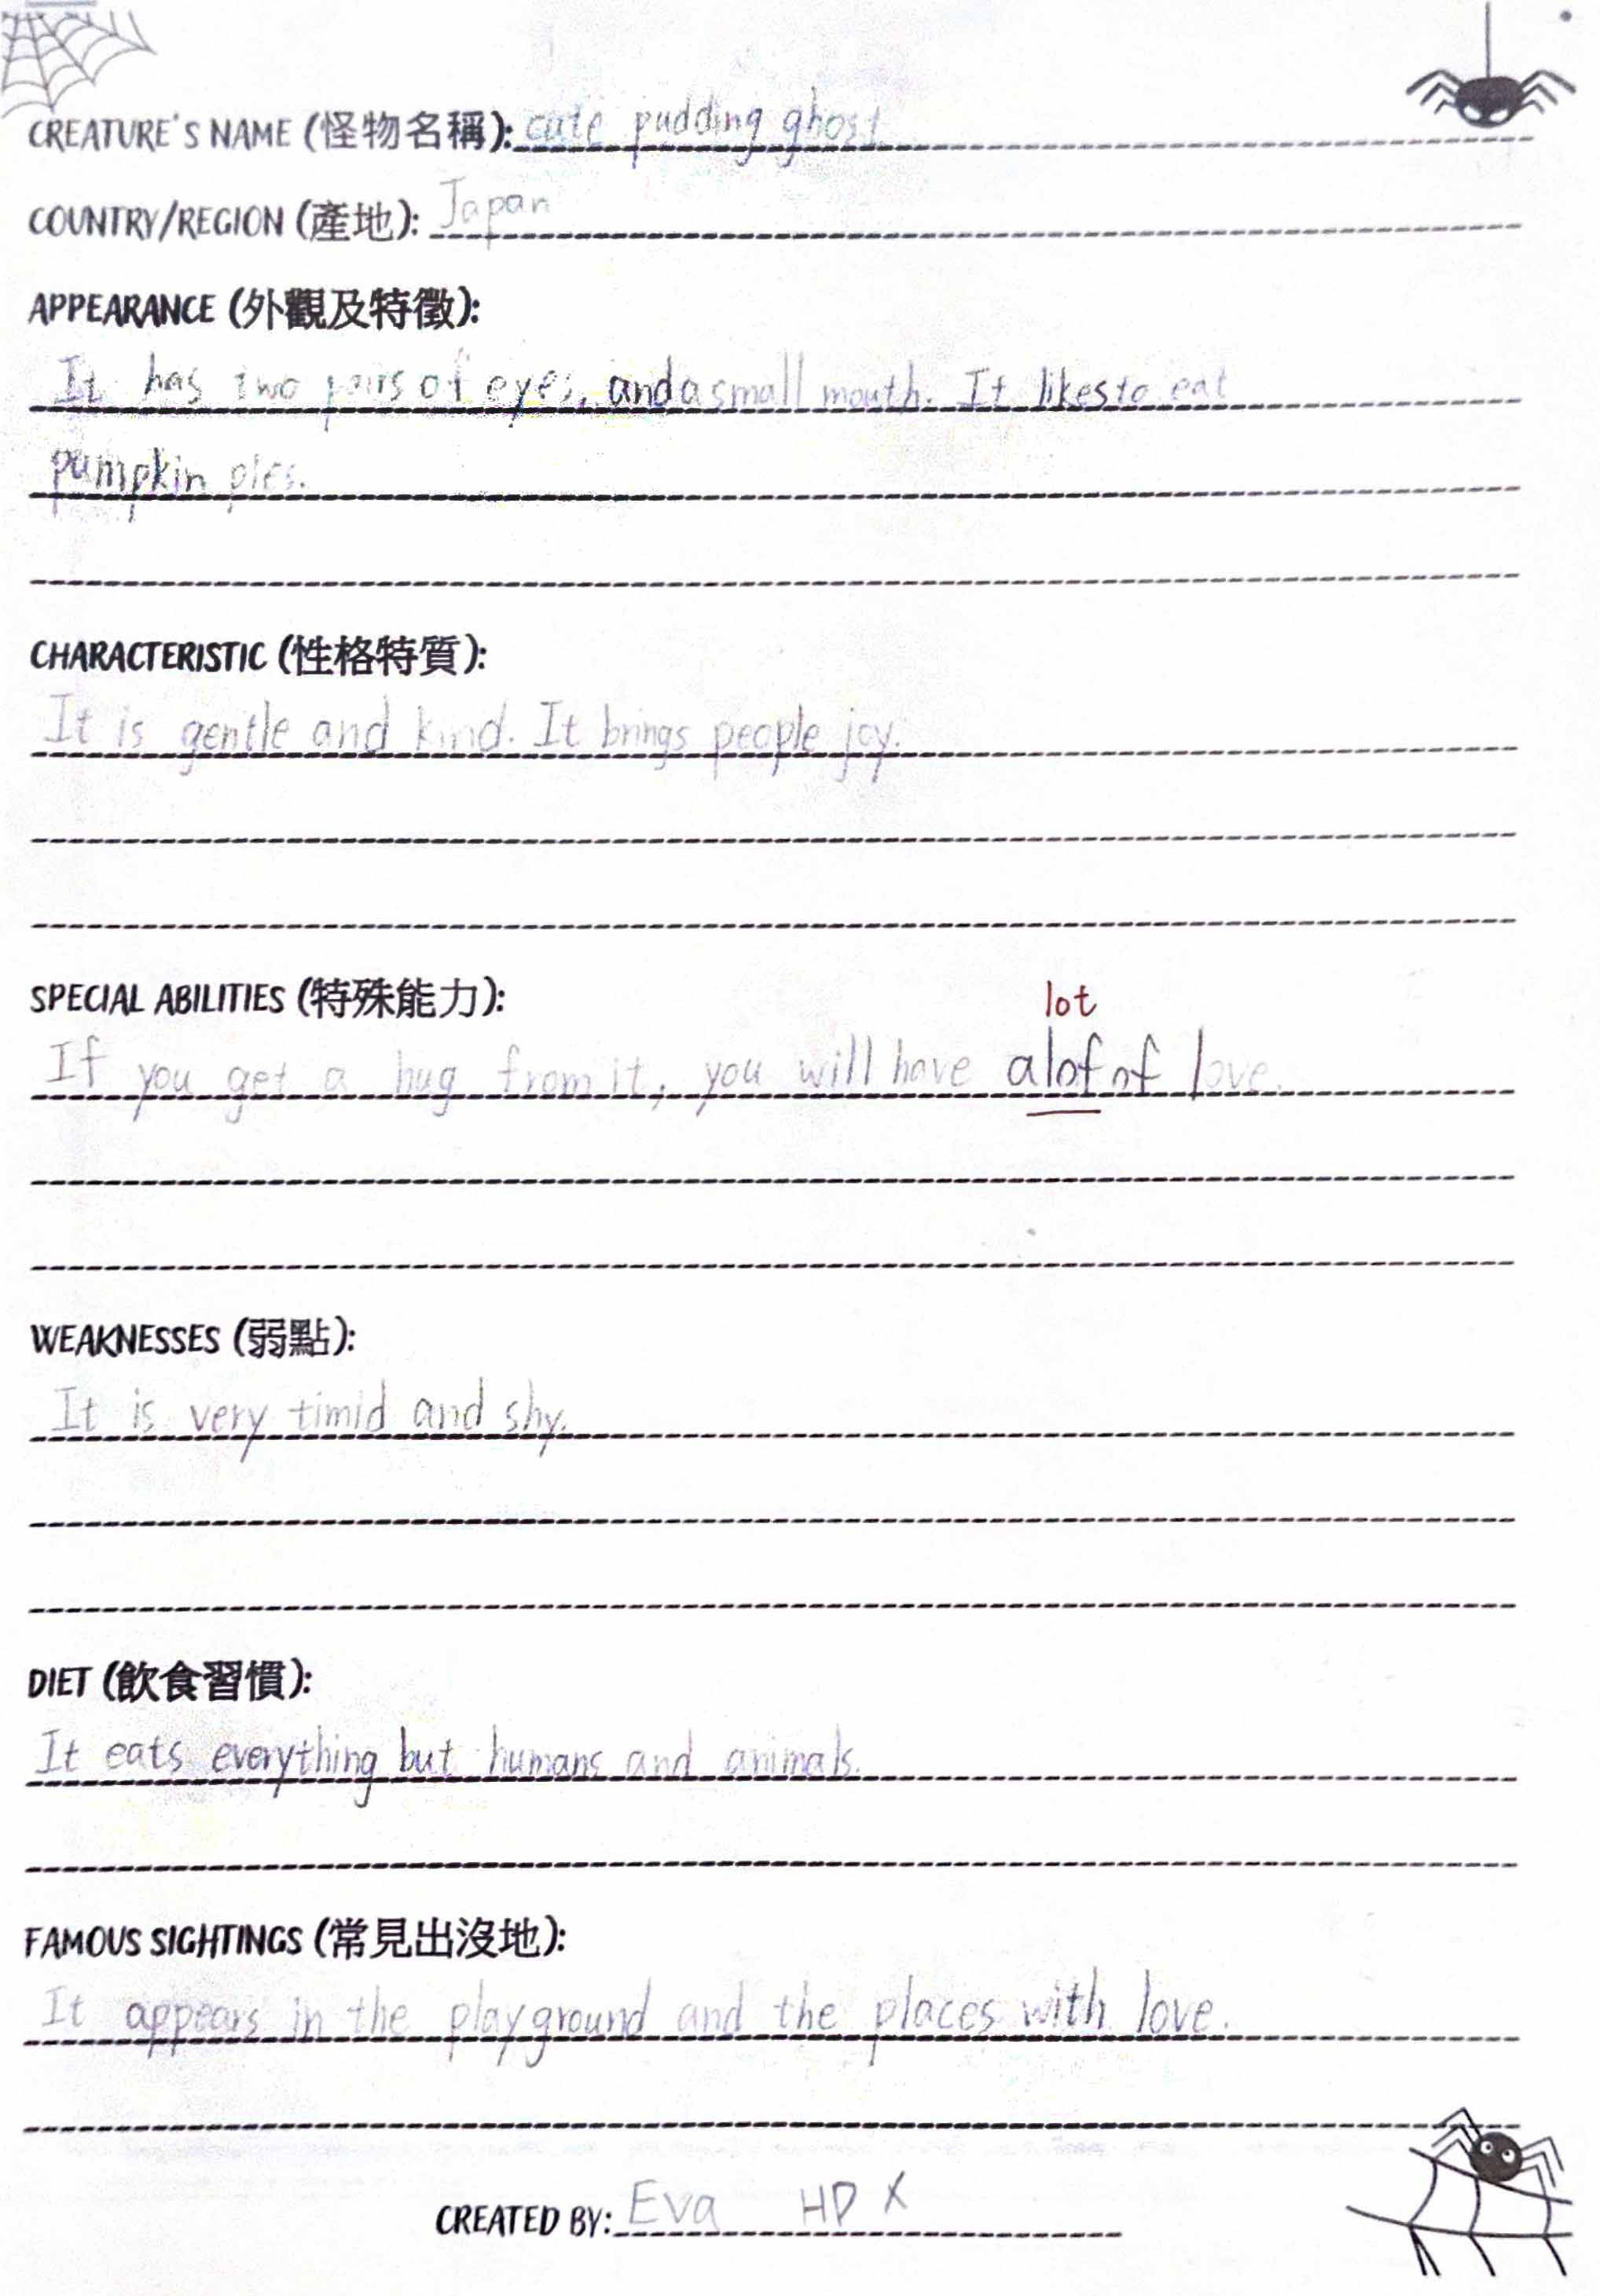 CREATURE'S NAME (怪物名稱): cute pudding ghost
COUNTRY/REGION (產地): Japan
APPEARANCE (外觀及特徵):
It has two pairs of eyes, and a small mouth. It likes to eat
pumpkin pies.
CHARACTERISTIC (性格特質):
It is gentle and kind. It brings people joy.
SPECIAL ABILITIES (特殊能力):
lot
If you get a hug from it, you will have a lof of love.
WEAKNESSES (弱點):
It is very timid and shy.
DIET (飲食習慣):
It eats everything but humans and animals.
FAMOUS SIGHTINGS (常見出沒地):
It appears in the playground and the places with love.
CREATED BY: Eva HD X